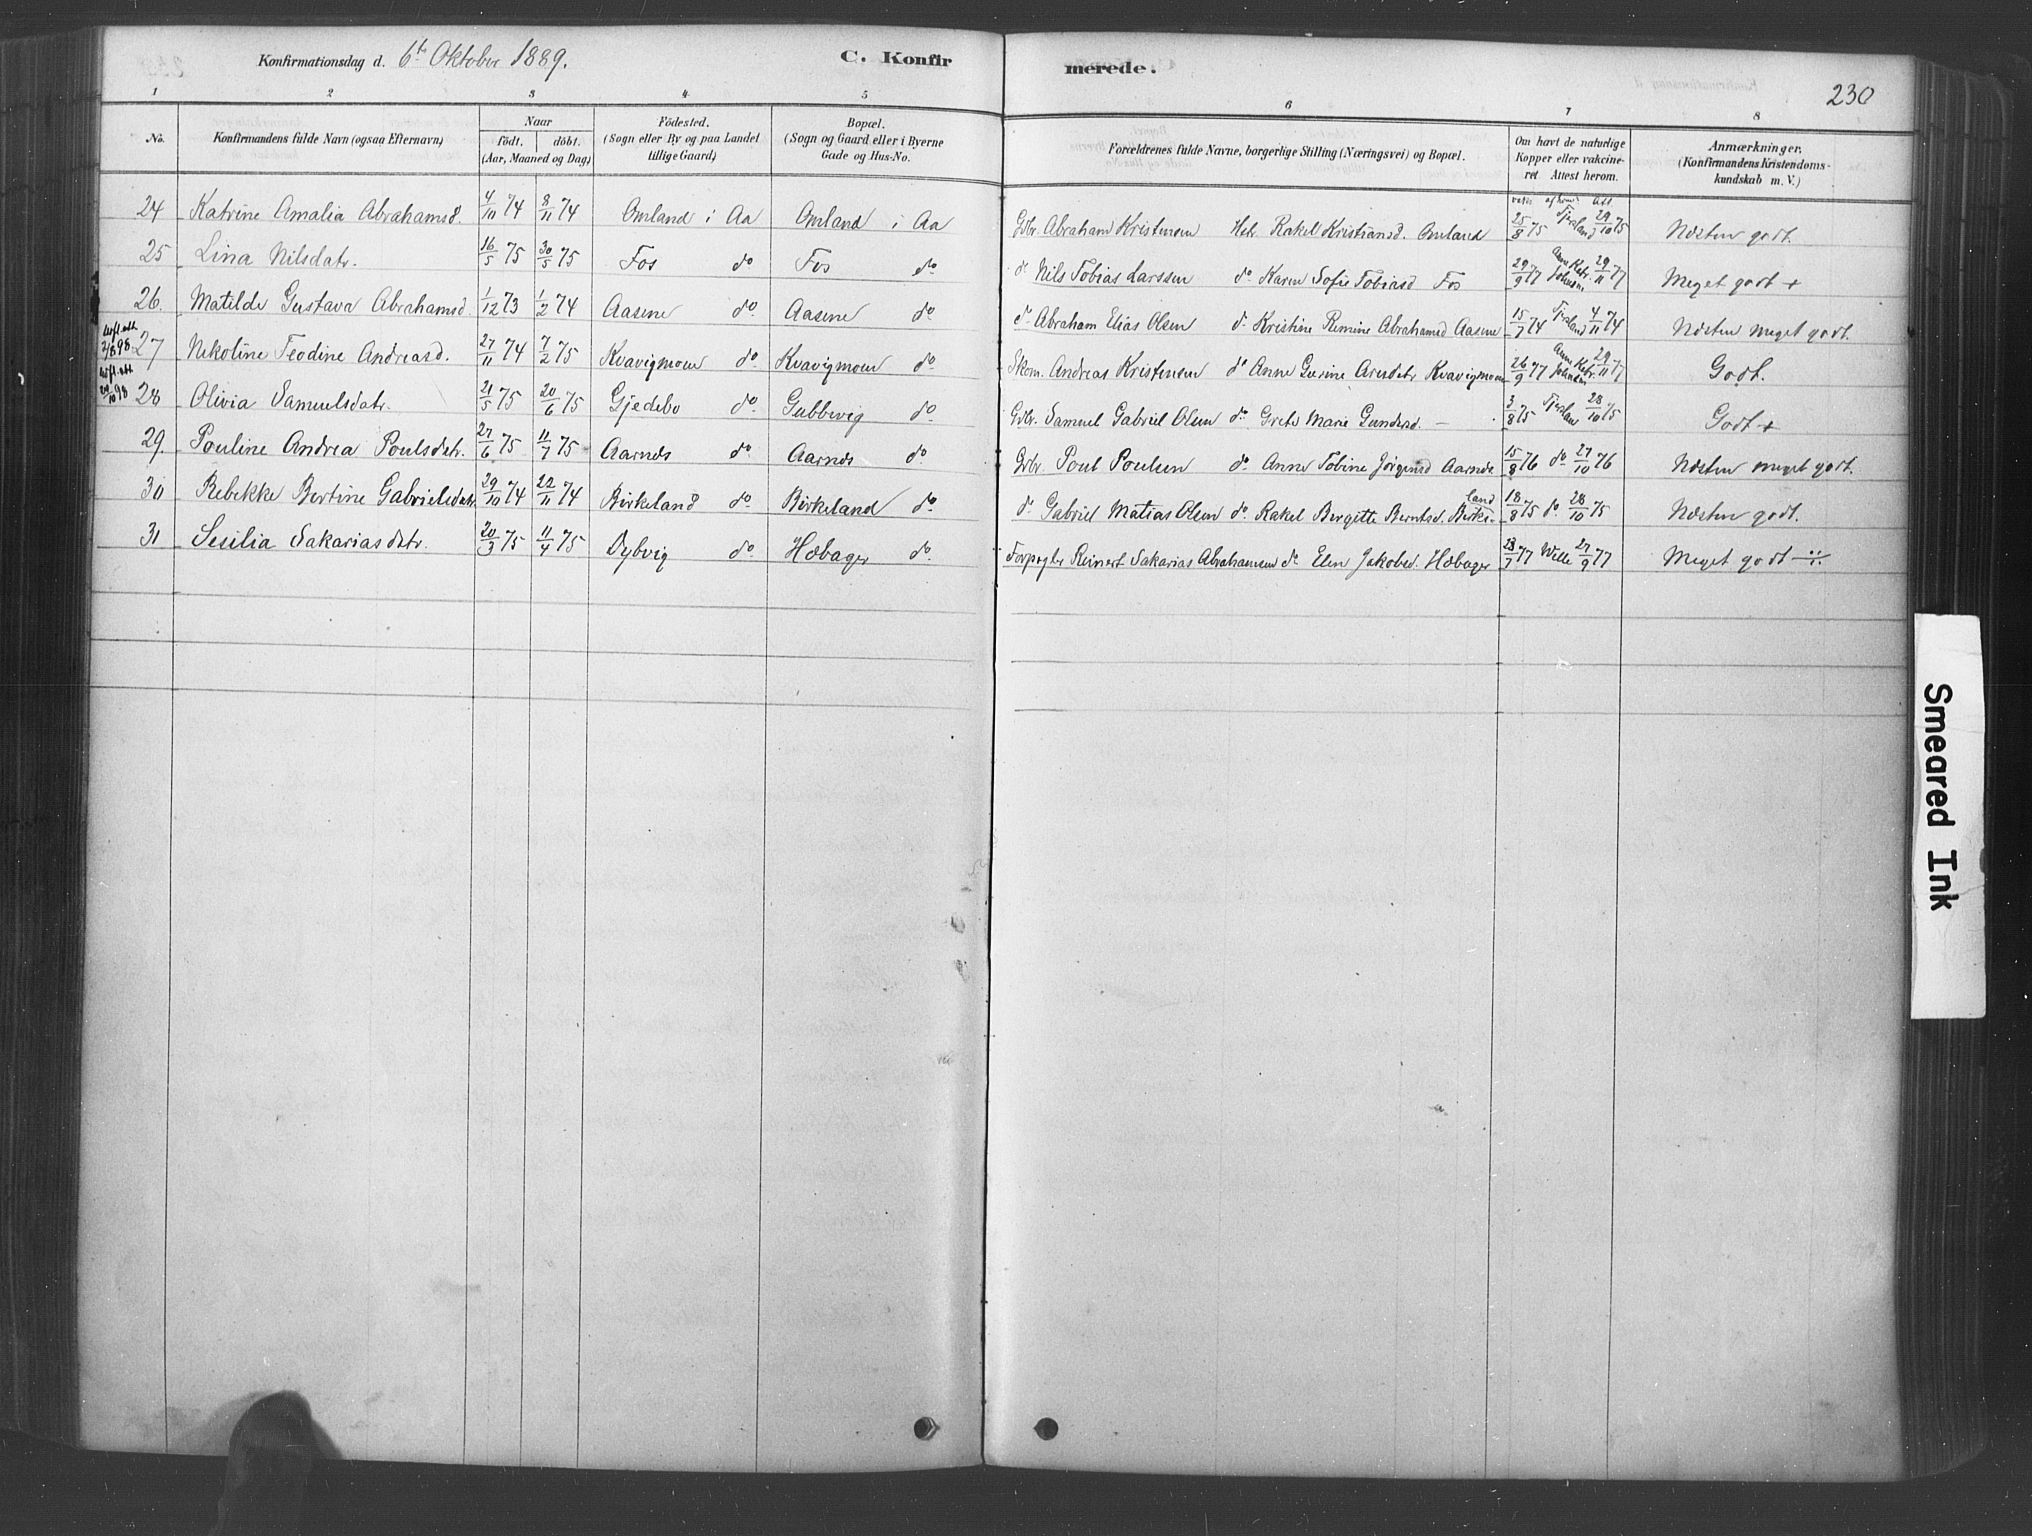 Konfirmationsdag d. 6te Oktober 1889. C. Konfirmerede. 230
1 2 3 4 5 6 7 8
No. Konfirmandens fulde Navn (ogsaa Efternavn) Naar födt. döbt. (Aar, Maaned og Dag) Födested. (Sogn eller By og paa Landet tillige Gaard) Bopæl. (Sogn og Gaard eller i Byerne Gade og Hus-No. Forældrenes fulde Navne, borgerlige Stilling (Næringsvei) og Bopæl. Om havt de naturlige Kopper eller vakcineret Attest herom. Anmærkninger. (Konfirmandens Kristendomskundskab m. V.)
24 Katrine Amalia Abrahamsd. 4/10 74 8/11 74 Omland i Aa Omland i Aa Gbr. Abraham Kristensen Hst. Rakel Kristiansd. Omland 25/8 75 Fjersland 29/10 75 Næsten godt.
25 Lina Nilsdatr. 16/5 75 30/5 75 Fos do Fos do do Nils Tobias Larssen do Karen Sofie Tobiasd Fos 29/9 77 Anne Katr. Johnsen 29/11 77 Meget godt +
26. Matilde Gustava Abrahamsd. 1/12 73 1/2 74 Aasene do Aasene do do Abraham Elias Olsen do Kristine Remine Abrahamsd Aasene 15/7 74 Fjersland 4/11 74 Næsten meget godt.
2/8 98 27 Nikoline Teodine Andreasd. 27/11 74 7/2 75 Kvavigmoen do Kvavigmoen do Skom. Andreas Kristensen do Anne Gurine Arnsdatr Kvavigmoen 26/9 77 Anne Katr. Johnsen 29/11 77 Godt.
20/10 98 28 Olivia Samuelsdatr. 21/5 75 20/6 75 Gjedebo do Gubbevig do Gbr. Samuel Gabriel Olsen do Grete Marie Gundersd. — 3/8 75 Fjersland 28/10 75 Godt +
29. Pouline Andrea Poulsdatr. 27/6 75 11/7 75 Aarnes do Aarnes do Gbr. Poul Poulsen do Anne Tobine Jörgensd Aarnes 15/8 76 do 27/10 76 Næsten meget godt.
30 Rebekke Bertine Gabrielsdatr 29/10 74 22/11 74 Birkeland do Birkeland do do Gabriel Matias Olsen do Rakel Bergitte Berntsd. Birkeland 18/8 75 do 28/10 75 Næsten godt.
31 Sesilia Sakariasdatr. 20/3 75 11/4 75 Dybvig do Hæbager do Forpagter Reinert Sakarias Abrahamsen do Elen Jakobsd. Hæbager 28/7 77 Wille 27/9 77 Meget godt
Smeared Ink